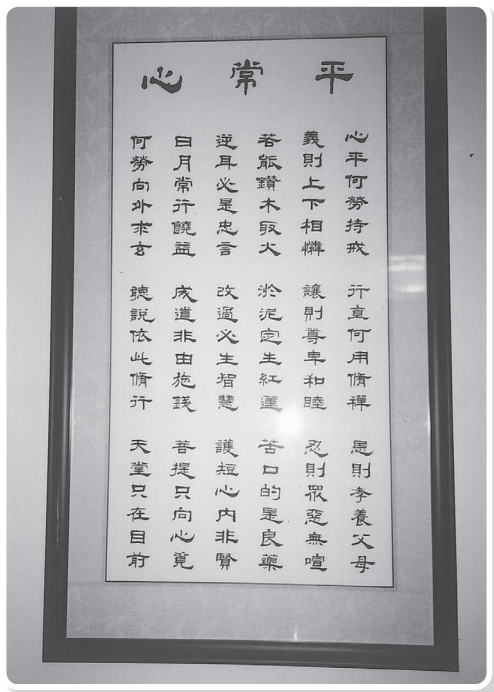 平常心
心平何勞持戒 行直何用脩禪 恩則孝養父母
義則上下相憐 讓則尊卑和睦 忍則眾惡無喧
若能鑽木取火 淤泥定生紅蓮 苦口的是良藥
逆耳必是忠言 改過必生智慧 護短心內非賢
日月常行饒益 成道非由施錢 菩提只向心覓
何勞向外求玄 聽說依此脩行 天堂只在目前